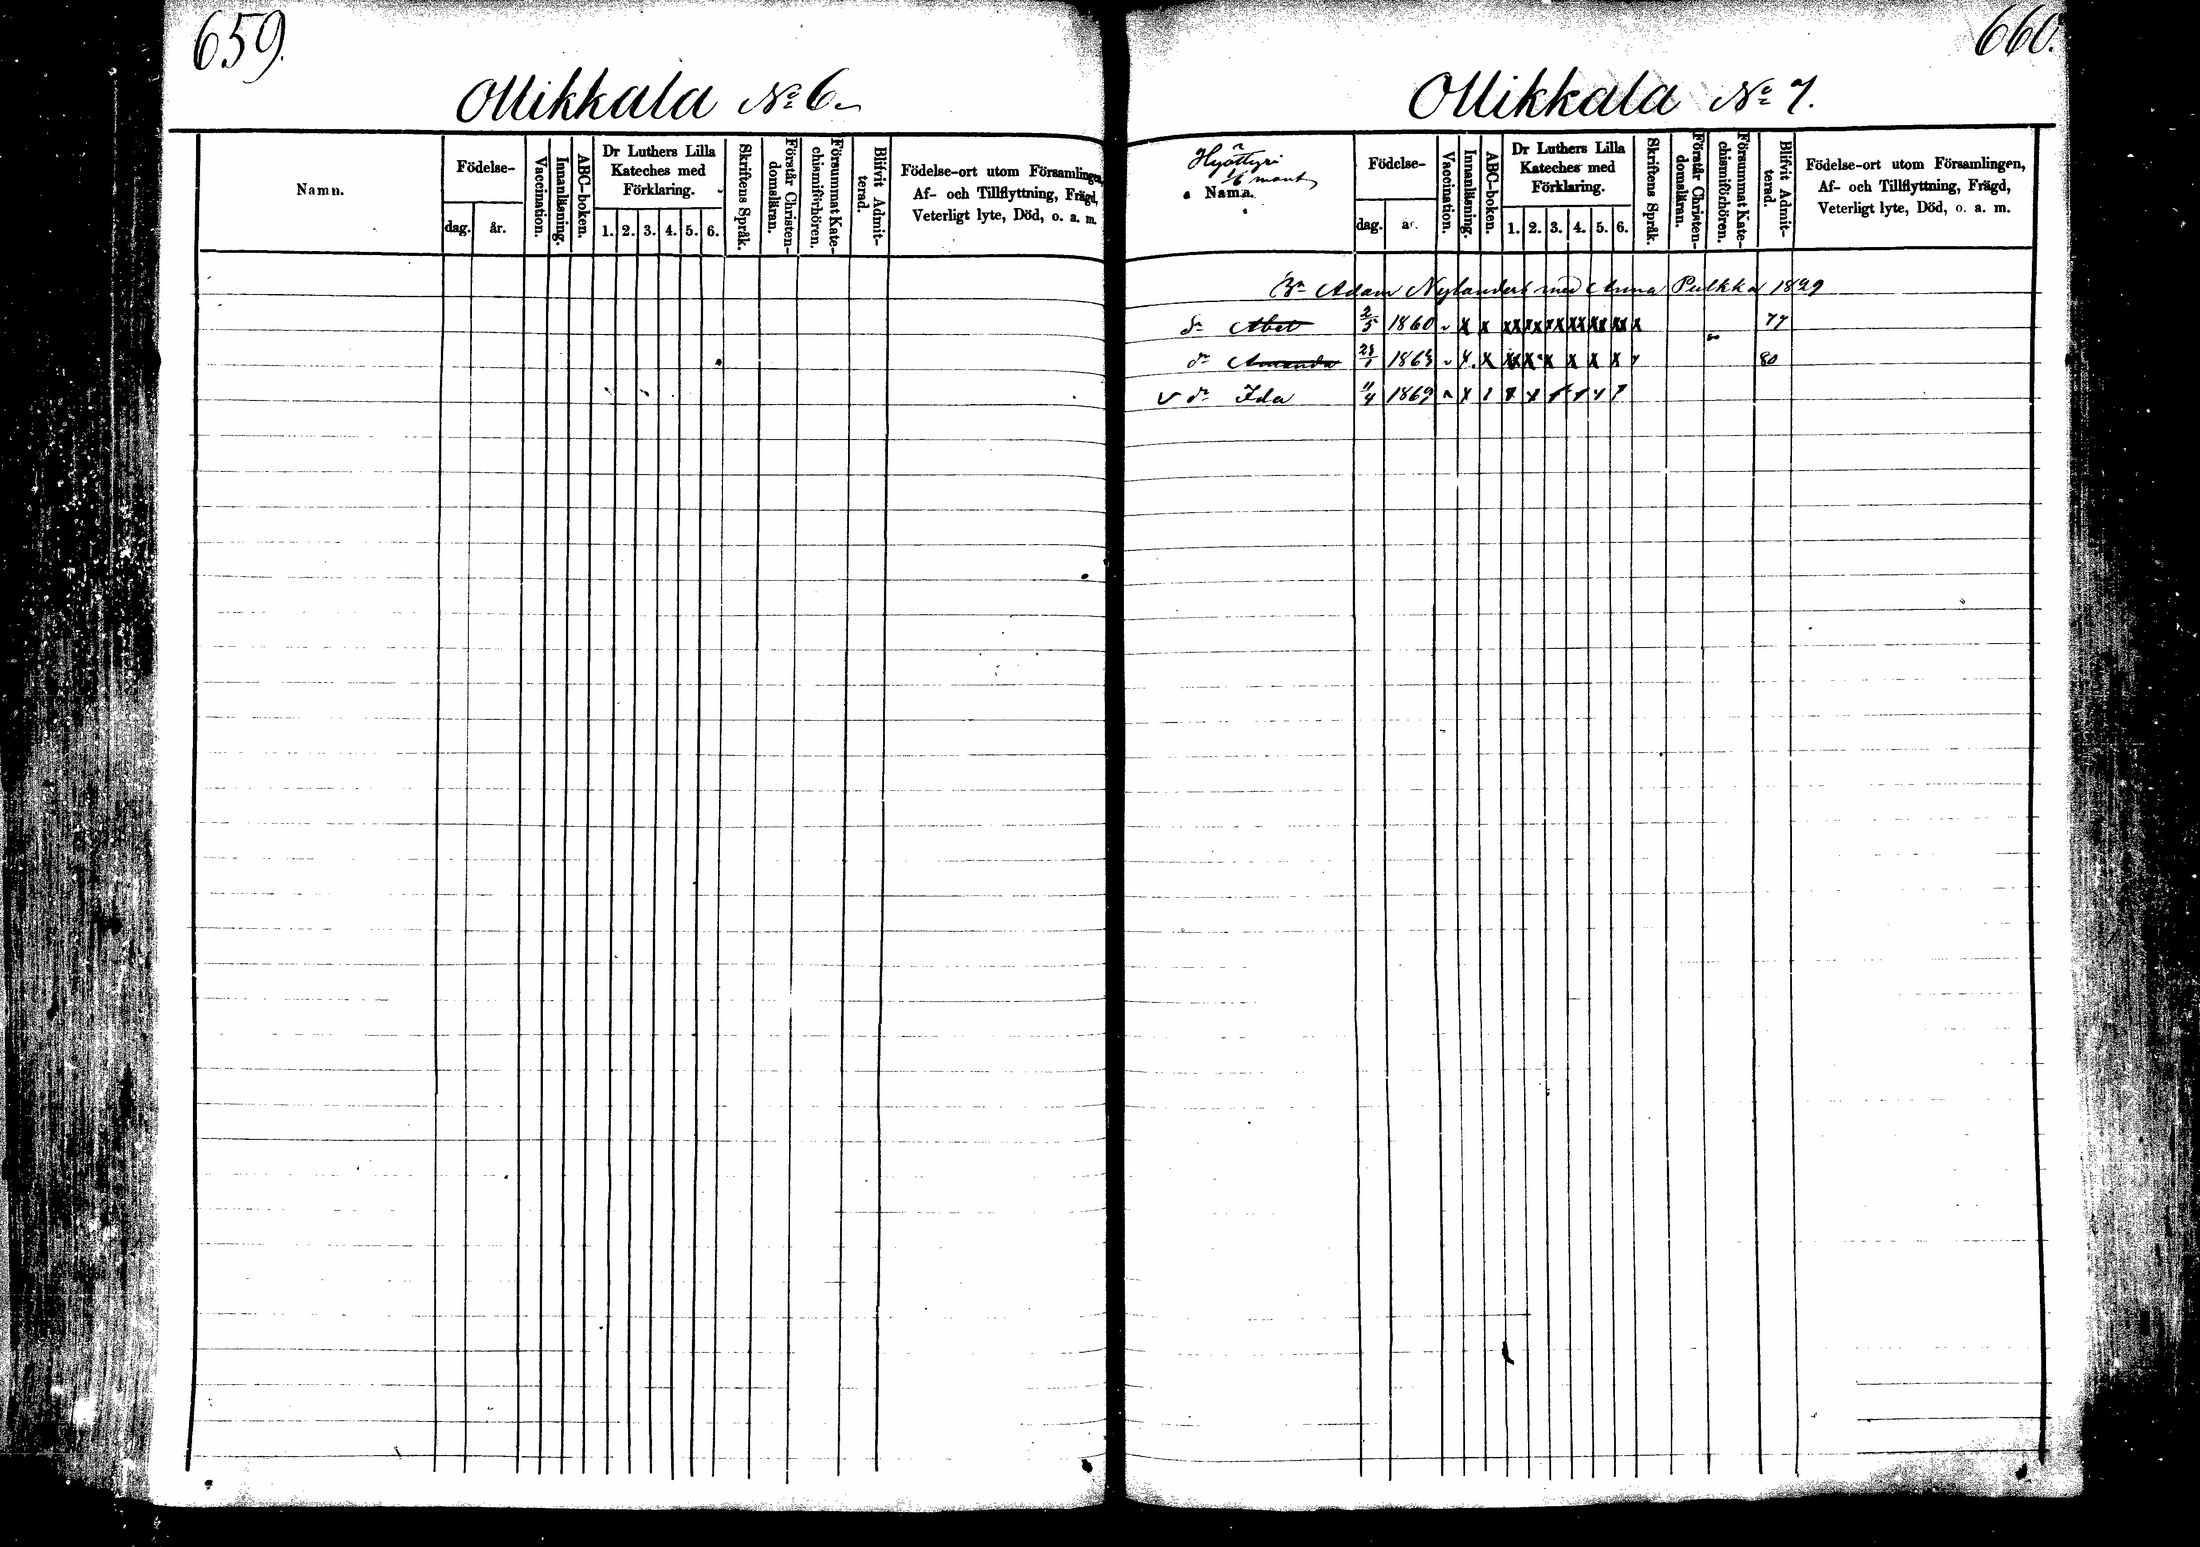 659.
Ollikkala No 6.
Namn.
Födelse-
dag.
år.
Vaccination.
Innanläsning.
ABC-boken.
Dr Luthers Lilla
Kateches med
Förklaring.
1. 2. 3. 4. 5. 6.
Skriftens Språk.
Förstår Christen-
domsläran.
Försummat Kate-
chismiförhören.
Blifvit Admit-
terad.
Födelse-ort utom Församlingen,
Af- och Tillflyttning, Frägd,
Veterligt lyte, Död, o. a. m.
660.
Ollikkala No 7.
Hyöttyri
1/6 mant
Namn.
Födelse-
dag.
år.
Vaccination.
Innanläsning.
ABC-boken.
Dr Luthers Lilla
Kateches med
Förklaring.
1. 2. 3. 4. 5. 6.
Skriftens Språk.
Förstår Christen-
domsläran.
Försummat Kate-
chismiförhören.
Blifvit Admit-
terad.
Födelse-ort utom Församlingen,
Af- och Tillflyttning, Frägd,
Veterligt lyte, Död, o. a. m.
Adam Nylanders med Anna Pulkka 1829
Abel 2/5 1860 77
dr Amanda 1863 80
v dr Ida 11/4 1869